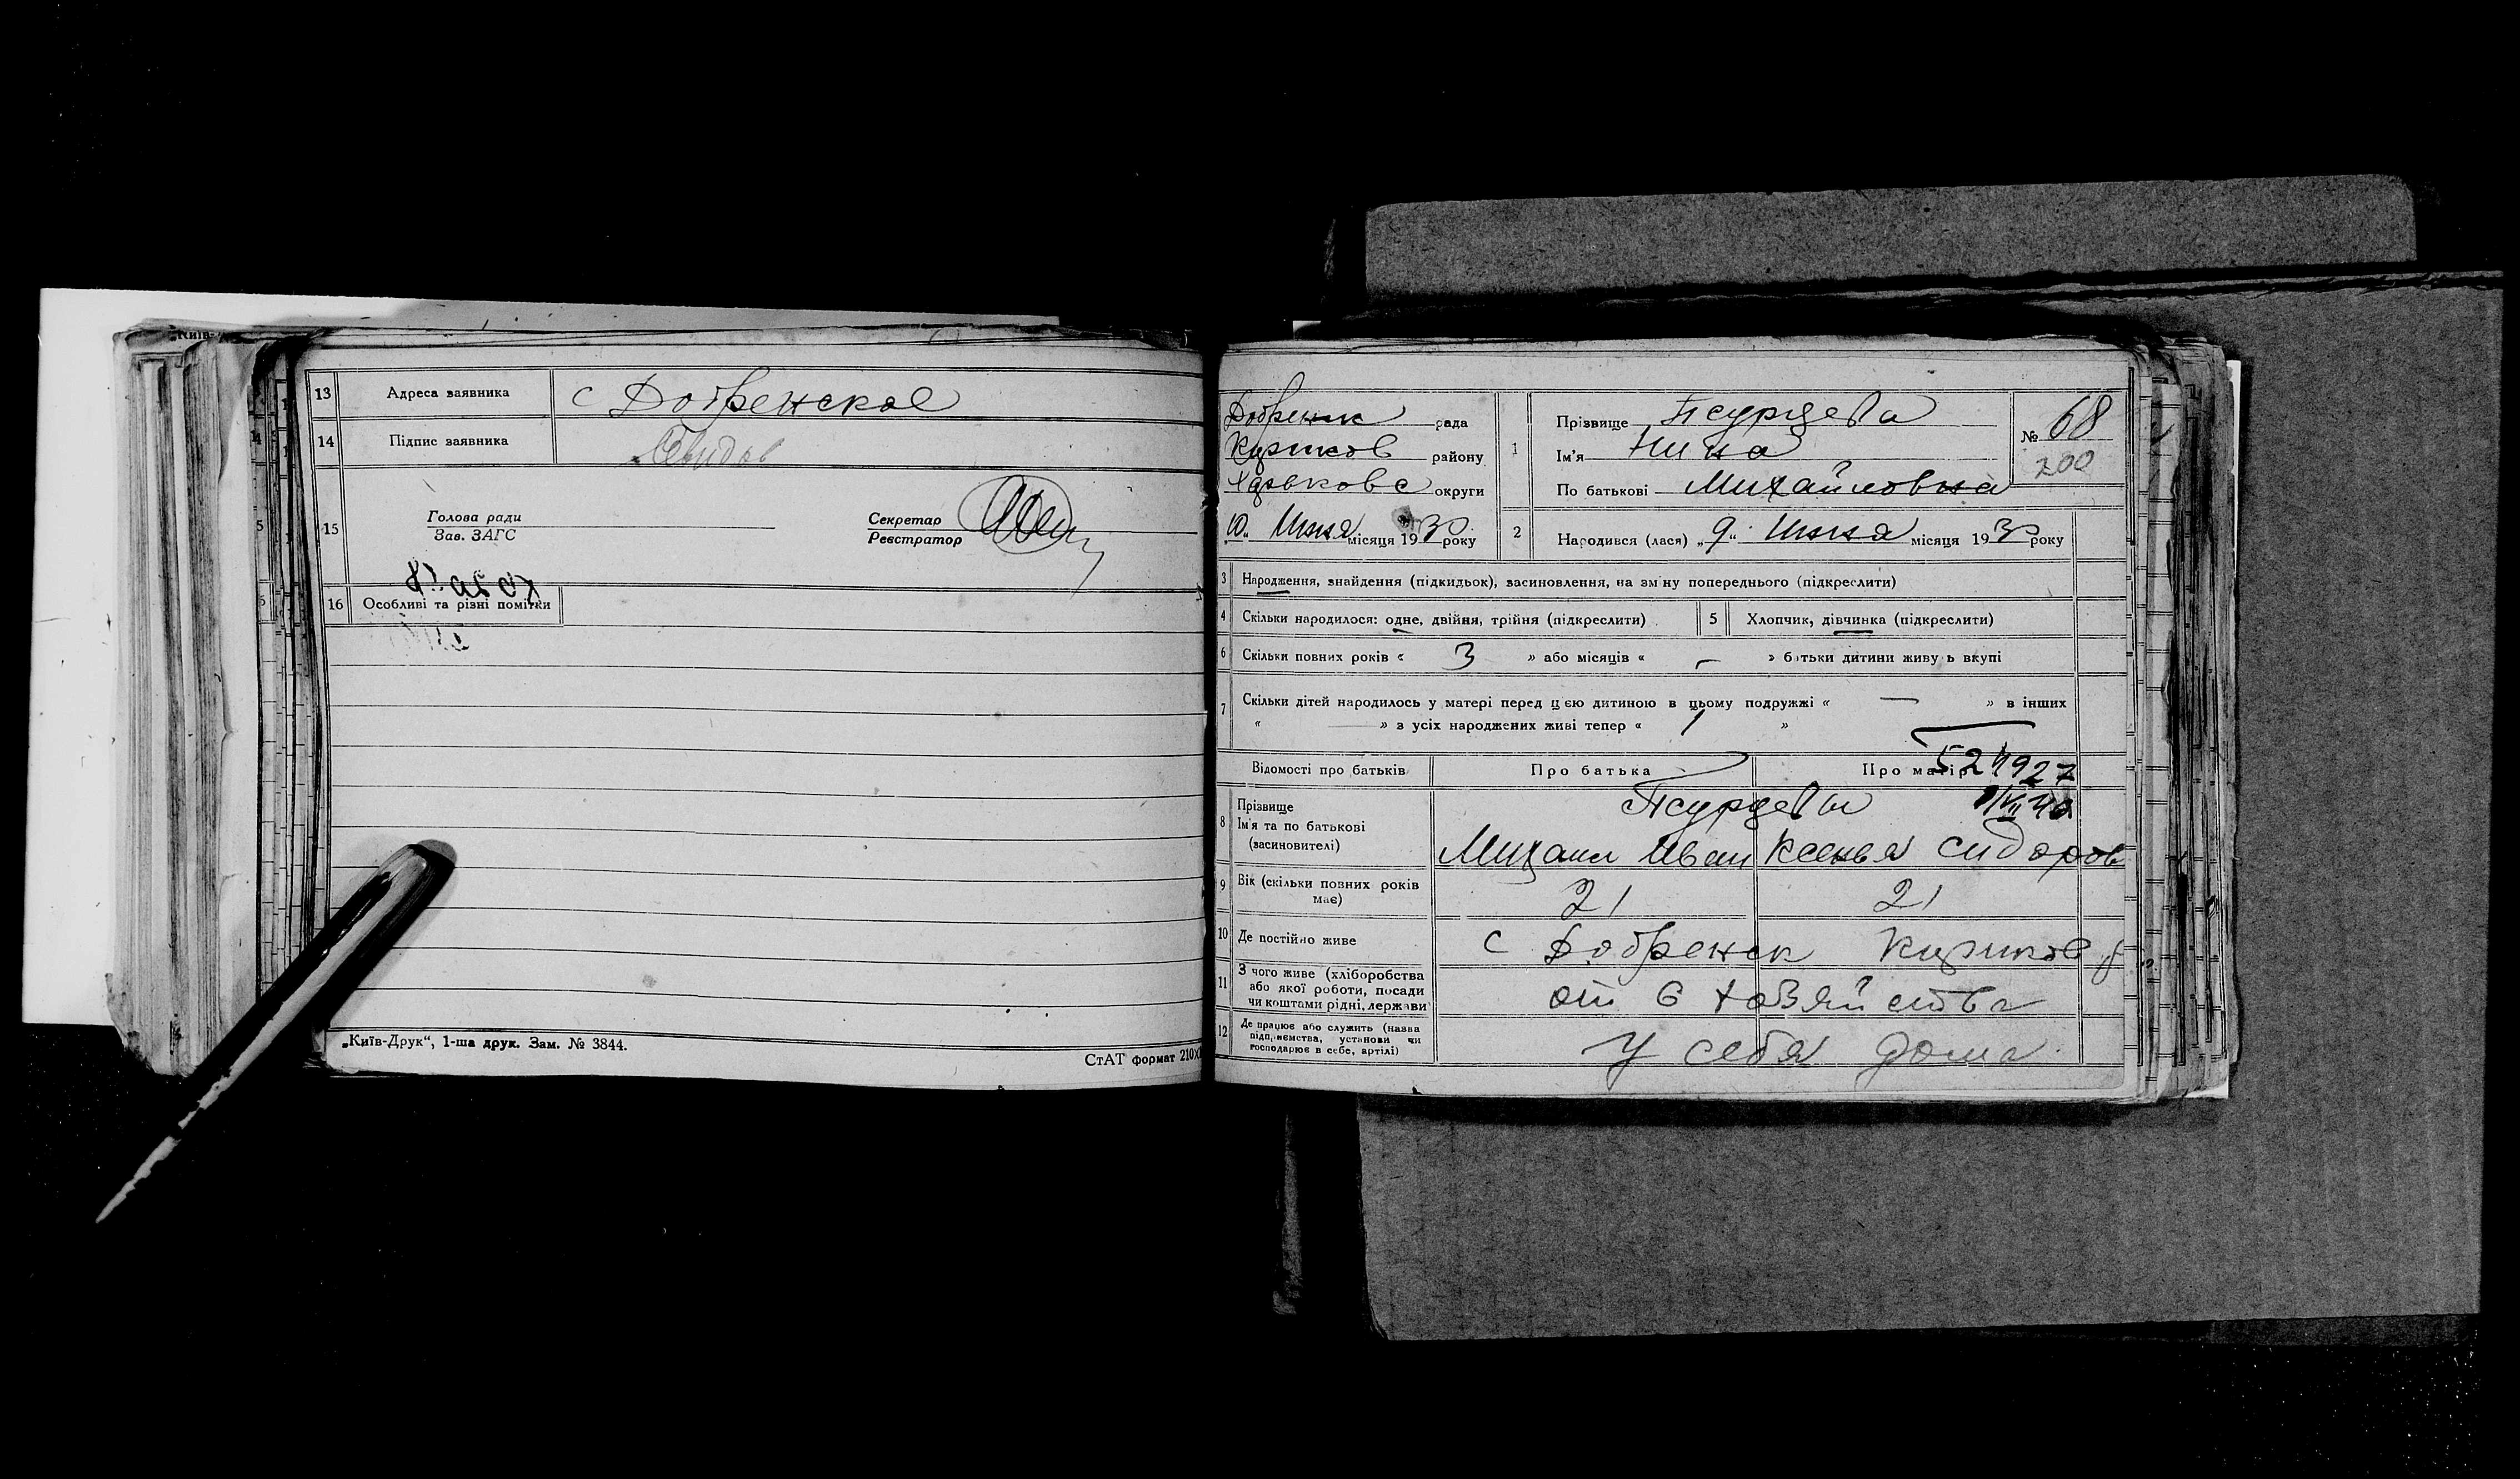 13 Адреса заявника с Добренское
14 Підпис заявника
15 Голова ради
Зав. ЗАГС
Секретар
Реєстратор
16 Особливі та різні помітки
„Київ-Друк“, 1-ша друк. Зам. № 3844.
СтАТ формат 210х
Добренск рада
район­у
округи
10 Июня місяця 1930 року
1 Прізвище Псурцева
Ім'я Нина
По батькові Михайловна
№ 68
200
2 Народився (лася) „9“ Июня місяця 1930 року
3 Народження, знайдення (підкидьок), засиновлення, на зміну попереднього (підкреслити)
4 Скільки народилося: одне, двійня, трійня (підкреслити)
5 Хлопчик, дівчинка (підкреслити)
6 Скільки повних років « 3 » або місяців « – » батьки дитини живуть вкупі
7 Скільки дітей народилось у матері перед цією дитиною в цьому подружжі « — » в інших
« — » з усіх народжених живі тепер « 1 »
Відомості про батьків Про батька Про матір
524927
8 Прізвище
Ім'я та по батькові
(засиновителі)
Псурцевы
Михаил Иван Ксенья Сидоров
9 Вік (скільки повних років має) 21 21
10 Де постійно живе с Добренск
11 З чого живе (хліборобства або якої роботи, посади чи коштами рідні, держави) от с хозяйства
12 Де працює або служить (назва підприємства, установи чи господарює в себе, артілі) у себя дома